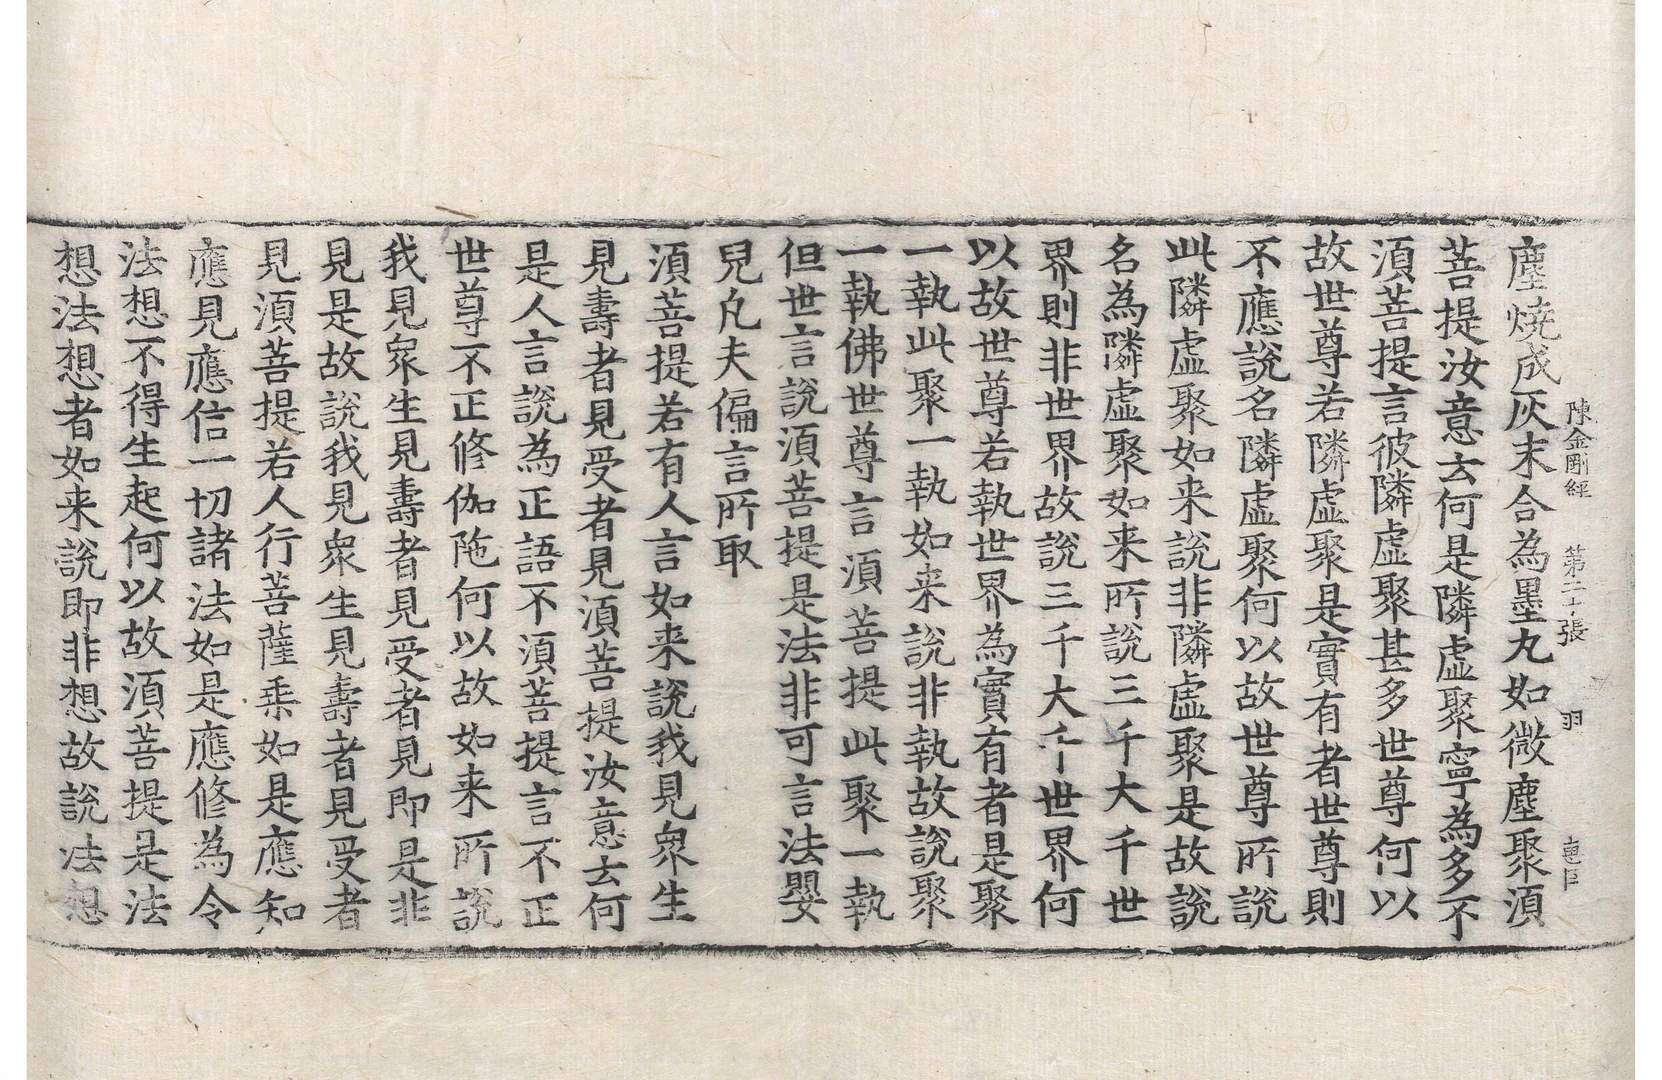 陳金剛經　第二十張　羽
塵燒成灰末合為墨丸如微塵聚須
菩提汝意云何是隣虛聚寧為多不
須菩提言彼隣虛聚甚多世尊何以
故世尊若隣虛聚是實有者世尊則
不應說名隣虛聚何以故世尊所說
此隣虛聚如来說非隣虛聚是故說
名為隣虛聚如来所說三千大千世
界則非世界故說三千大千世界何
以故世尊若執世界為實有者是聚
一執此聚一執如来說非執故說聚
一執佛世尊言須菩提此聚一執
但世言說須菩提是法非可言法嬰
兒凡夫偏言所取
須菩提若有人言如来說我見衆生
見壽者見受者見須菩提汝意云何
是人言說為正語不須菩提言不正
世尊不正修伽陁何以故如来所說
我見衆生見壽者見受者見即是非
見是故說我見衆生見壽者見受者
見須菩提若人行菩薩乗如是應知
應見應信一切諸法如是應修為令
法想不得生起何以故須菩提是法
想法想者如来說即非想故說法想